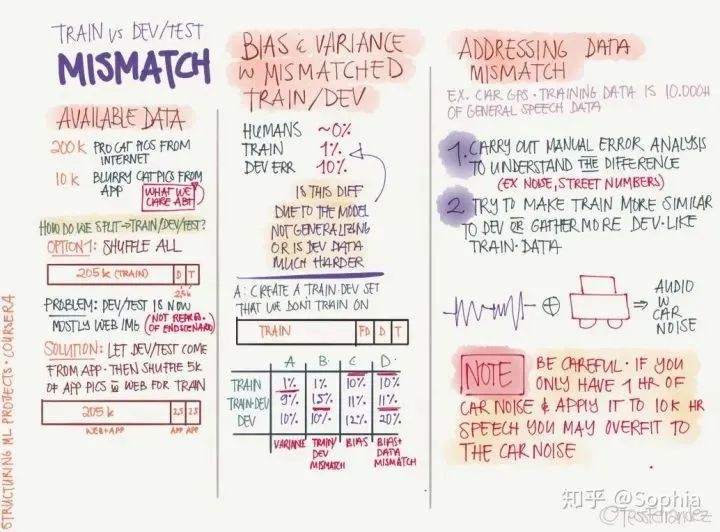 TRAIN vs DEV/TEST
MISMATCH
AVAILABLE DATA
200k PRO CAT PICS FROM
INTERNET
10k BLURRY CAT PICS FROM
APP
WHAT WE
CARE ABT
HOW DO WE SPLIT → TRAIN/DEV/TEST?
OPTION 1: SHUFFLE ALL
205k (TRAIN) D T
2.5k
PROBLEM: DEV/TEST IS NOW
MOSTLY WEB IMG (NOT REPR.
OF END SCENARIO)
SOLUTION: LET DEV/TEST COME
FROM APP. THEN SHUFFLE 5K
OF APP PICS W WEB FOR TRAIN
205k 2.5 2.5
WEB+APP APP APP
STRUCTURING ML PROJECTS · COURSERA
BIAS & VARIANCE
W MISMATCHED
TRAIN/DEV
HUMANS ~0%
TRAIN 1%
DEV ERR 10%
IS THIS DIFF
DUE TO THE MODEL
NOT GENERALIZING
OR IS DEV DATA
MUCH HARDER
A: CREATE A TRAIN-DEV SET
THAT WE DON'T TRAIN ON
TRAIN D D T
A B C D
TRAIN 1% 1% 10% 10%
TRAIN-DEV 9% 1.5% 11% 11%
DEV 10% 10% 12% 20%
VARIANCE TRAIN/DEV MISMATCH BIAS BIAS+DATA MISMATCH
ADDRESSING DATA
MISMATCH
EX. CAR GPS · TRAINING DATA IS 10.000H
OF GENERAL SPEECH DATA
1. CARRY OUT MANUAL ERROR ANALYSIS
TO UNDERSTAND THE DIFFERENCE
(EX NOISE, STREET NUMBERS)
2. TRY TO MAKE TRAIN MORE SIMILAR
TO DEV OR GATHER MORE DEV-LIKE
TRAIN-DATA
AUDIO
W CAR
NOISE
NOTE BE CAREFUL · IF YOU
ONLY HAVE 1 HR OF
CAR NOISE & APPLY IT TO 10K HR
SPEECH YOU MAY OVERFIT TO
THE CAR NOISE
知乎 @Sophia
@TessFerrandez